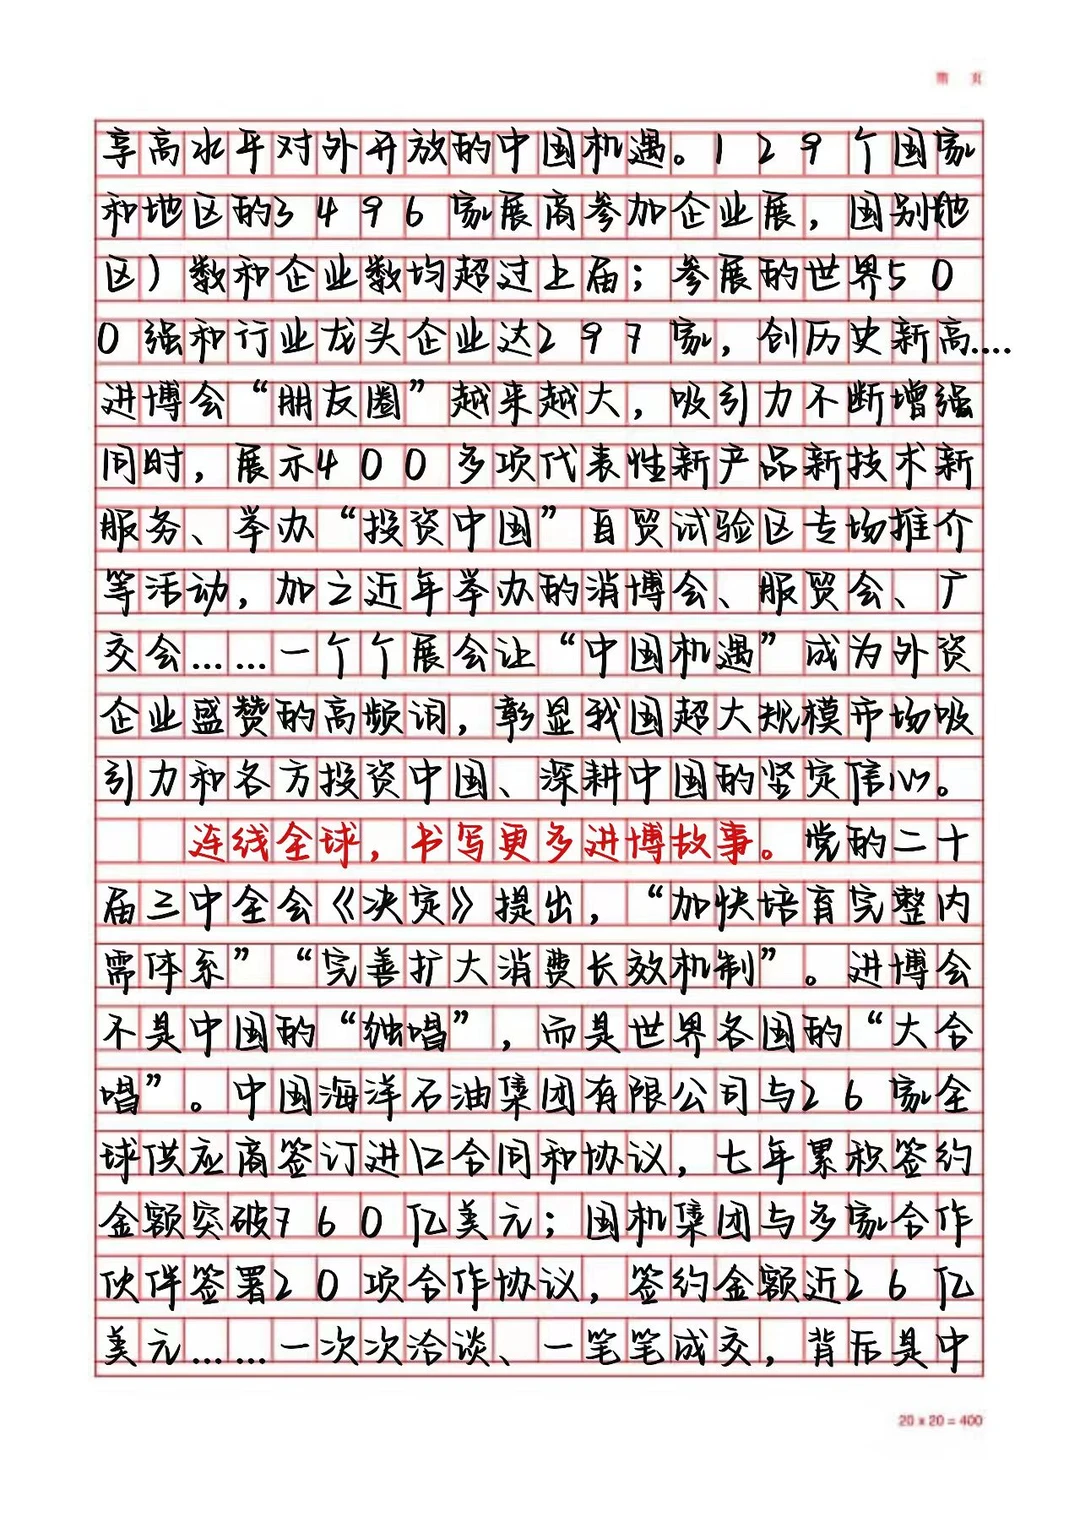 第 页
享高水平对外开放的中国机遇。129个国家
和地区的3496家展商参加企业展，国别地
区）数和企业数均超过上届；参展的世界50
0强和行业龙头企业达297家，创历史新高....
进博会“朋友圈”越来越大，吸引力不断增强
同时，展示400多项代表性新产品新技术新
服务、举办“投资中国”自贸试验区专场推介
等活动，加之近年举办的消博会、服贸会、广
交会……一个个展会让“中国机遇”成为外资
企业盛赞的高频词，彰显我国超大规模市场吸
引力和各方投资中国、深耕中国的坚定信心。
连线全球，书写更多进博故事。党的二十
届三中全会《决定》提出，“加快培育完整内
需体系”“完善扩大消费长效机制”。进博会
不是中国的“独唱”，而是世界各国的“大合
唱”。中国海洋石油集团有限公司与26家全
球供应商签订进口合同和协议，七年累积签约
金额突破760亿美元；国机集团与多家合作
伙伴签署20项合作协议，签约金额近26亿
美元……一次次洽谈、一笔笔成交，背后是中
20 x 20 = 400